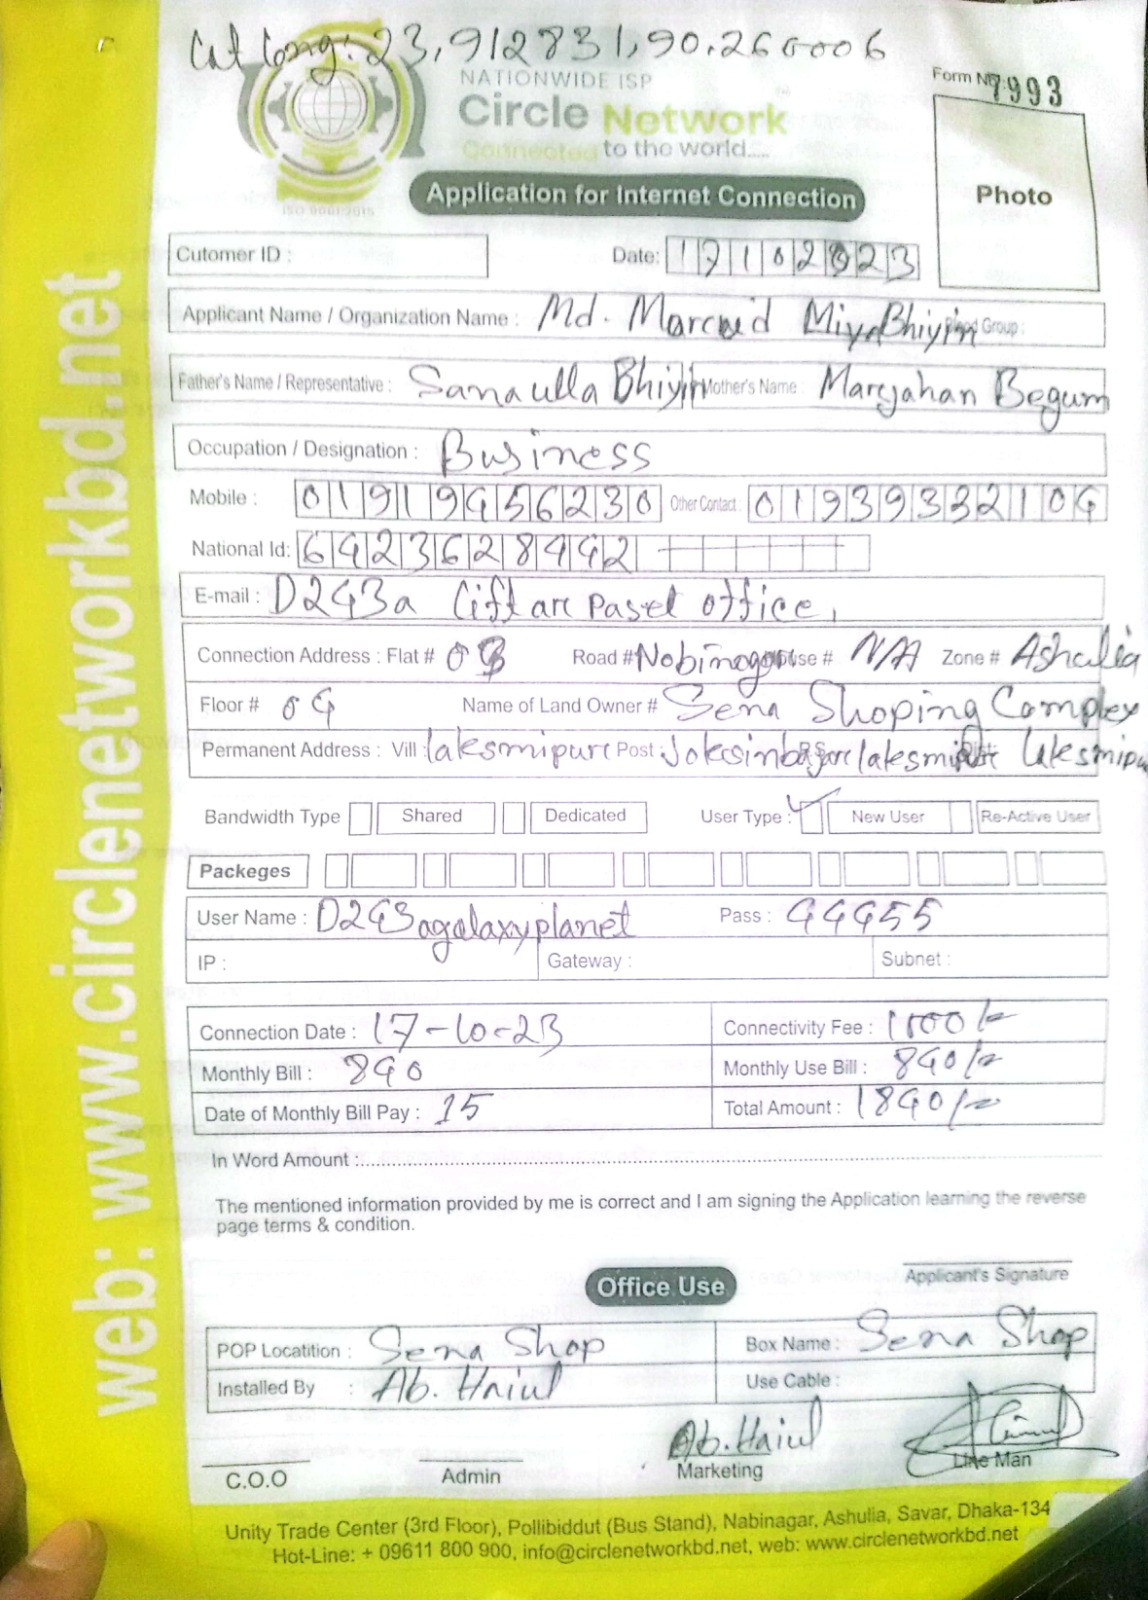 Lat Long: 23,912831,90.266006
NATIONWIDE ISP
Form No 7993
Circle Network
Connected to the world....
ISO 9001:2015
Application for Internet Connection
Photo
Cutomer ID :
Date: 17102023
Applicant Name / Organization Name : Md. Marcud Miya Bhiyin Group :
Father's Name / Representative : Sanaulla Bhiyin Mother's Name : Marjahan Begum
Occupation / Designation : Business
Mobile : 01919456230 Other Contact : 01939332104
National Id: 6423628442
E-mail : D243a Lift are pasel office,
Connection Address : Flat # 03 Road # Nobinogor House # N/A Zone # Ashulia
Floor # 04 Name of Land Owner # Sena Shoping Complex
Permanent Address : Vill : laksmipure Post : laksmipur Dist: laksmipu
Bandwidth Type Shared Dedicated User Type : New User Re-Active User
Packeges
User Name : D243agalaxyplanet Pass : 44455
IP : Gateway : Subnet :
Connection Date : 17-10-23 Connectivity Fee : 1000/=
Monthly Bill : 840 Monthly Use Bill : 840/=
Date of Monthly Bill Pay : 15 Total Amount : 1840/=
In Word Amount :
The mentioned information provided by me is correct and I am signing the Application learning the reverse
page terms & condition.
Applicant's Signature
Office Use
POP Locatition : Sena Shop Box Name : Sena Shop
Installed By : Ab. Haiul Use Cable :
Ab. Haiul
C.O.O Admin Marketing Line Man
Unity Trade Center (3rd Floor), Pollibiddut (Bus Stand), Nabinagar, Ashulia, Savar, Dhaka-134
Hot-Line: + 09611 800 900, info@circlenetworkbd.net, web: www.circlenetworkbd.net
web: www.circlenetworkbd.net